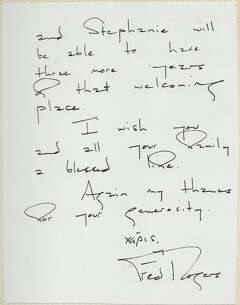 and Stephanie will
be able to have
three more years
of that welcoming
place.
I wish you
and all your family
a blessed time.
Again my thanks
for your generosity.
χάρις,
Fred Rogers